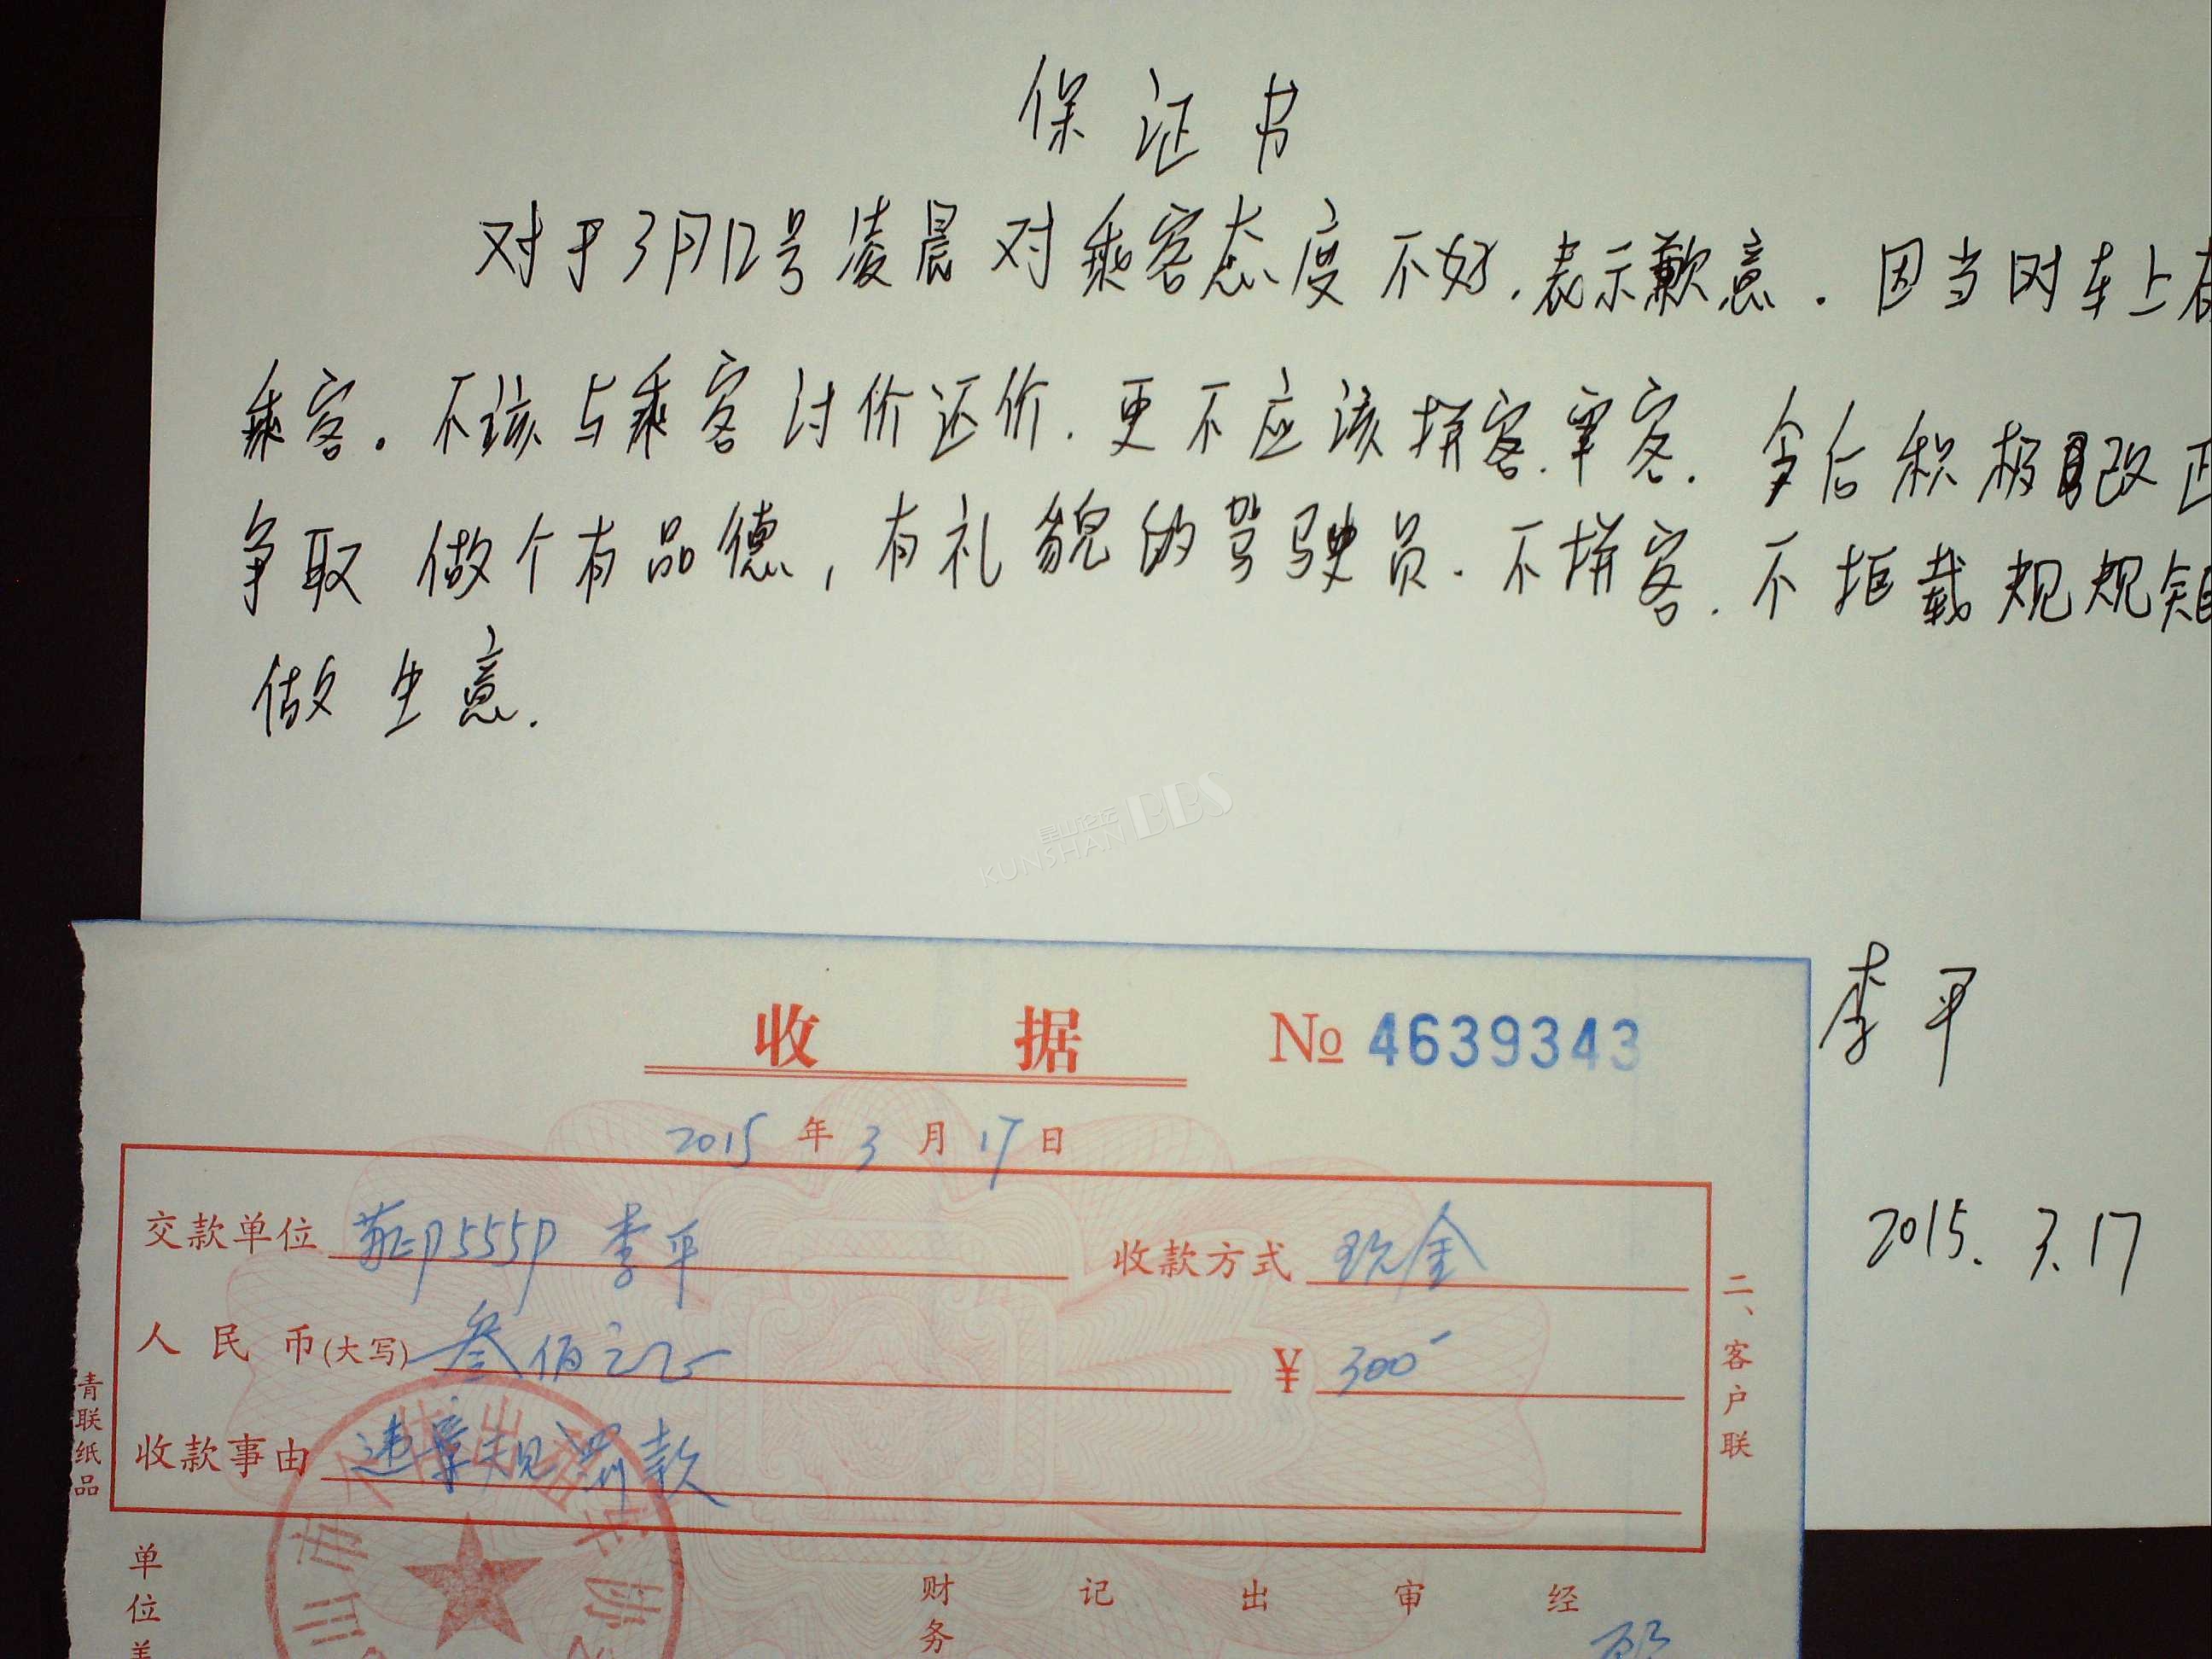 保证书
对于3月12号凌晨对乘客态度不好.表示歉意.因当时车上有
乘客。不该与乘客讨价还价.更不应该拼客.宰客.今后积极改正
争取做个有品德,有礼貌的驾驶员.不拼客.不拒载规规矩
做生意.
昆山论坛
KUNSHAN BBS
李平
2015.3.17
收据 No 4639343
2015年3月17日
交款单位 李平 收款方式 现金
人民币(大写) 叁佰元 ¥ 300
收款事由 违章规罚款
二、客户联
青联纸品
山市 出租车协
单位盖
财务 记 出 审 经